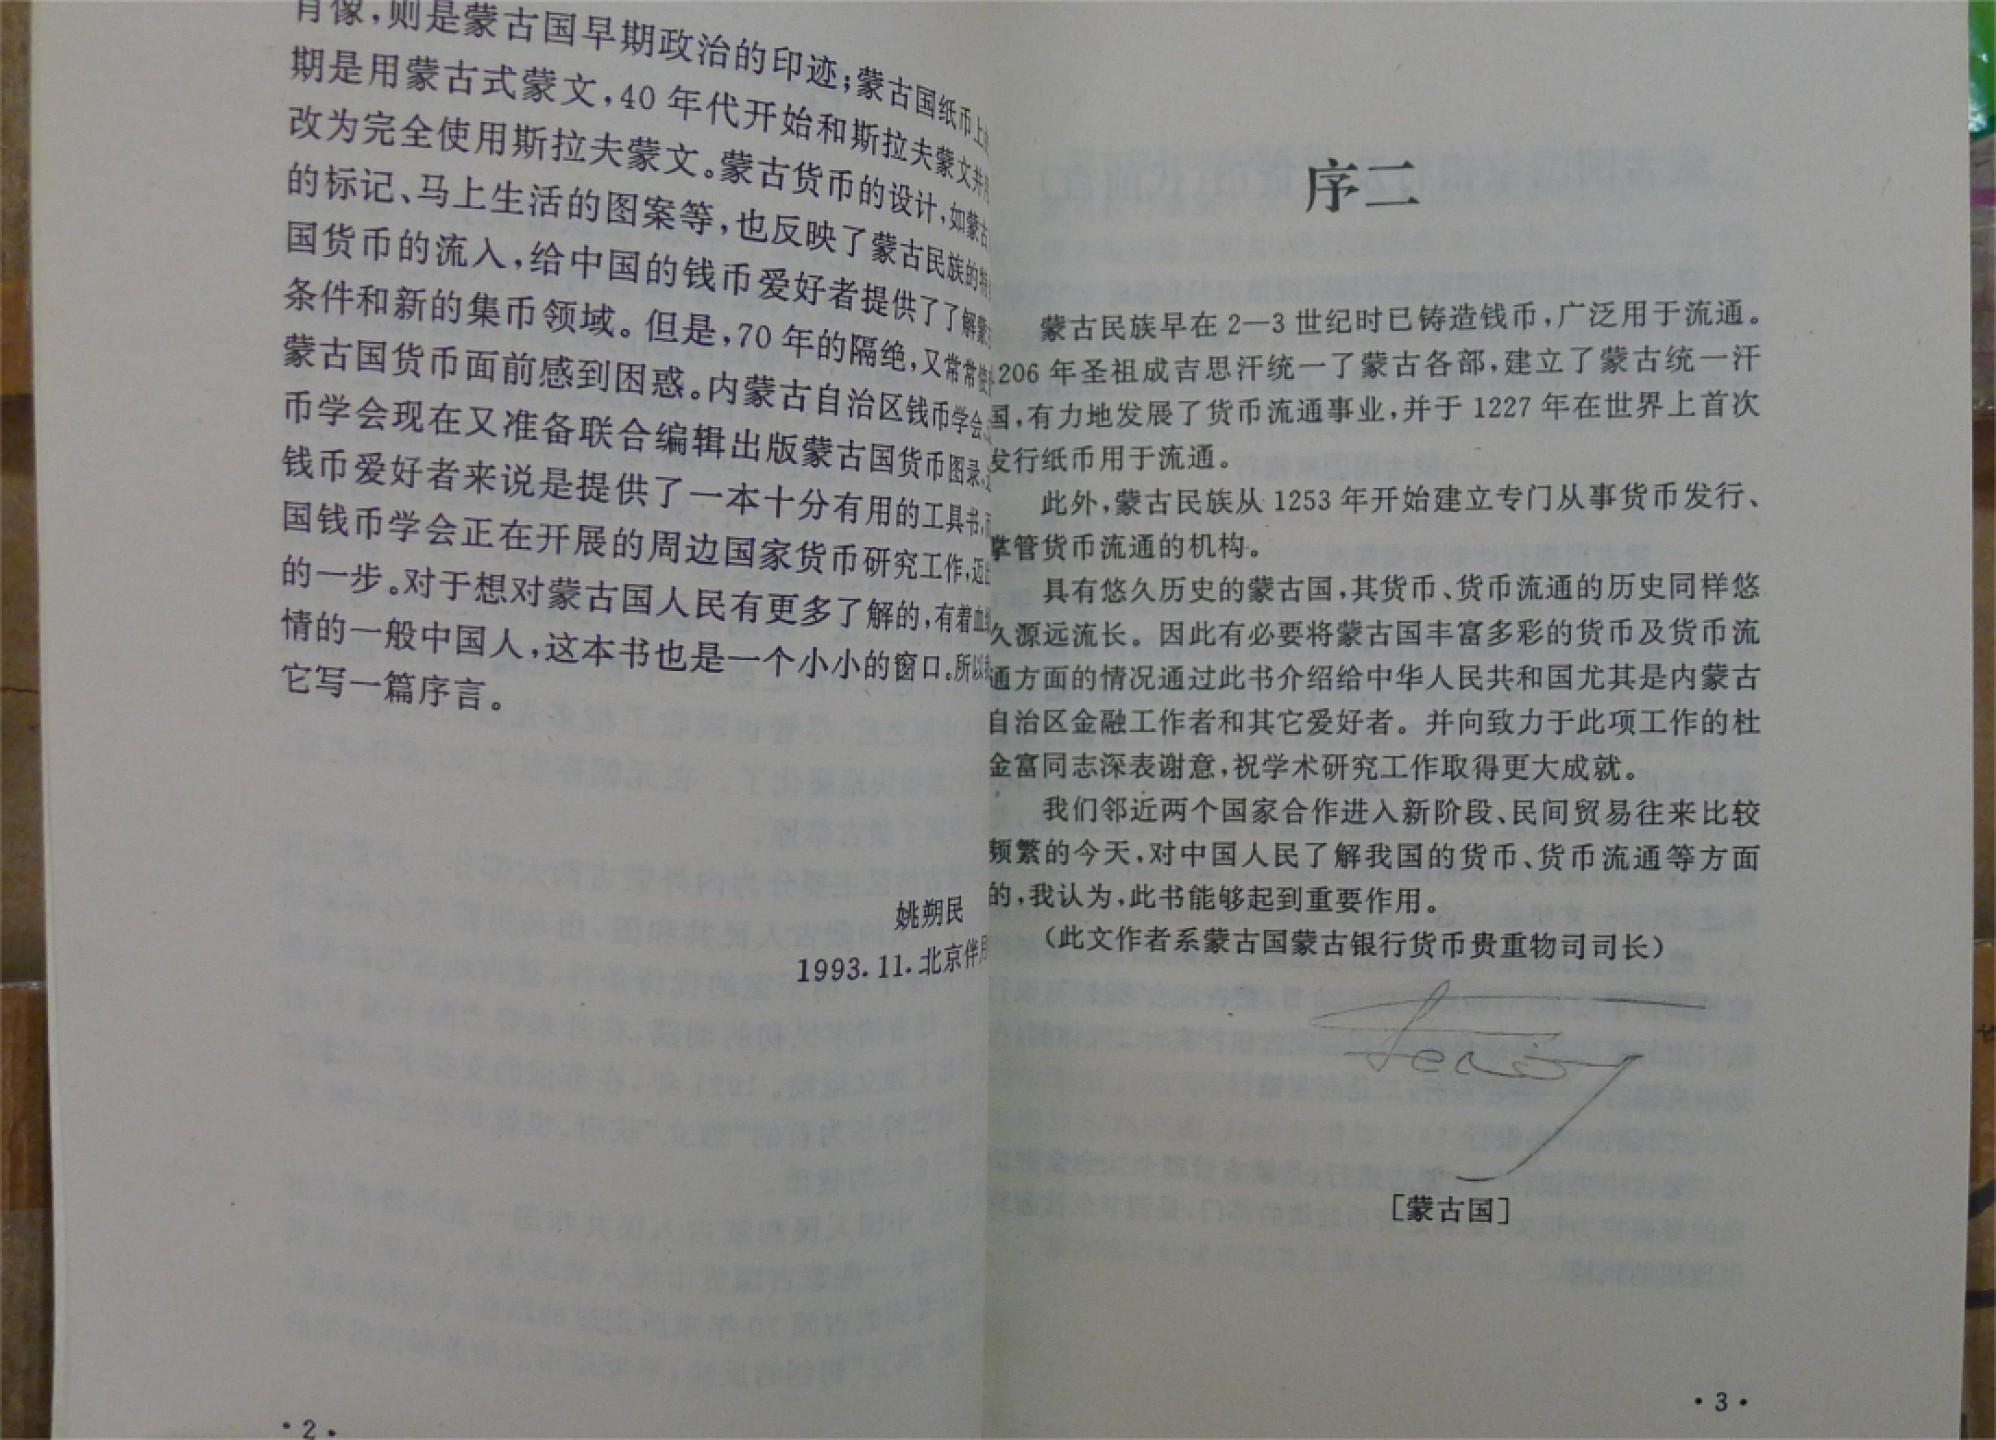 肖像，则是蒙古国早期政治的印迹；蒙古国纸币上
期是用蒙古式蒙文，40年代开始和斯拉夫蒙文并
改为完全使用斯拉夫蒙文。蒙古货币的设计，如蒙古
的标记、马上生活的图案等，也反映了蒙古民族的特
国货币的流入，给中国的钱币爱好者提供了了解蒙
条件和新的集币领域。但是，70年的隔绝，又常常使
蒙古国货币面前感到困惑。内蒙古自治区钱币学会
币学会现在又准备联合编辑出版蒙古国货币图录，
钱币爱好者来说是提供了一本十分有用的工具书，而
国钱币学会正在开展的周边国家货币研究工作，迈出
的一步。对于想对蒙古国人民有更多了解的，有着血
情的一般中国人，这本书也是一个小小的窗口。所以
它写一篇序言。
姚朔民
1993.11.北京伴月
·2·
序二
蒙古民族早在2—3世纪时已铸造钱币，广泛用于流通。
206年圣祖成吉思汗统一了蒙古各部，建立了蒙古统一汗
国，有力地发展了货币流通事业，并于1227年在世界上首次
发行纸币用于流通。
此外，蒙古民族从1253年开始建立专门从事货币发行、
掌管货币流通的机构。
具有悠久历史的蒙古国，其货币、货币流通的历史同样悠
久源远流长。因此有必要将蒙古国丰富多彩的货币及货币流
通方面的情况通过此书介绍给中华人民共和国尤其是内蒙古
自治区金融工作者和其它爱好者。并向致力于此项工作的杜
金富同志深表谢意，祝学术研究工作取得更大成就。
我们邻近两个国家合作进入新阶段、民间贸易往来比较
频繁的今天，对中国人民了解我国的货币、货币流通等方面
的，我认为，此书能够起到重要作用。
（此文作者系蒙古国蒙古银行货币贵重物司司长）
［蒙古国］
·3·